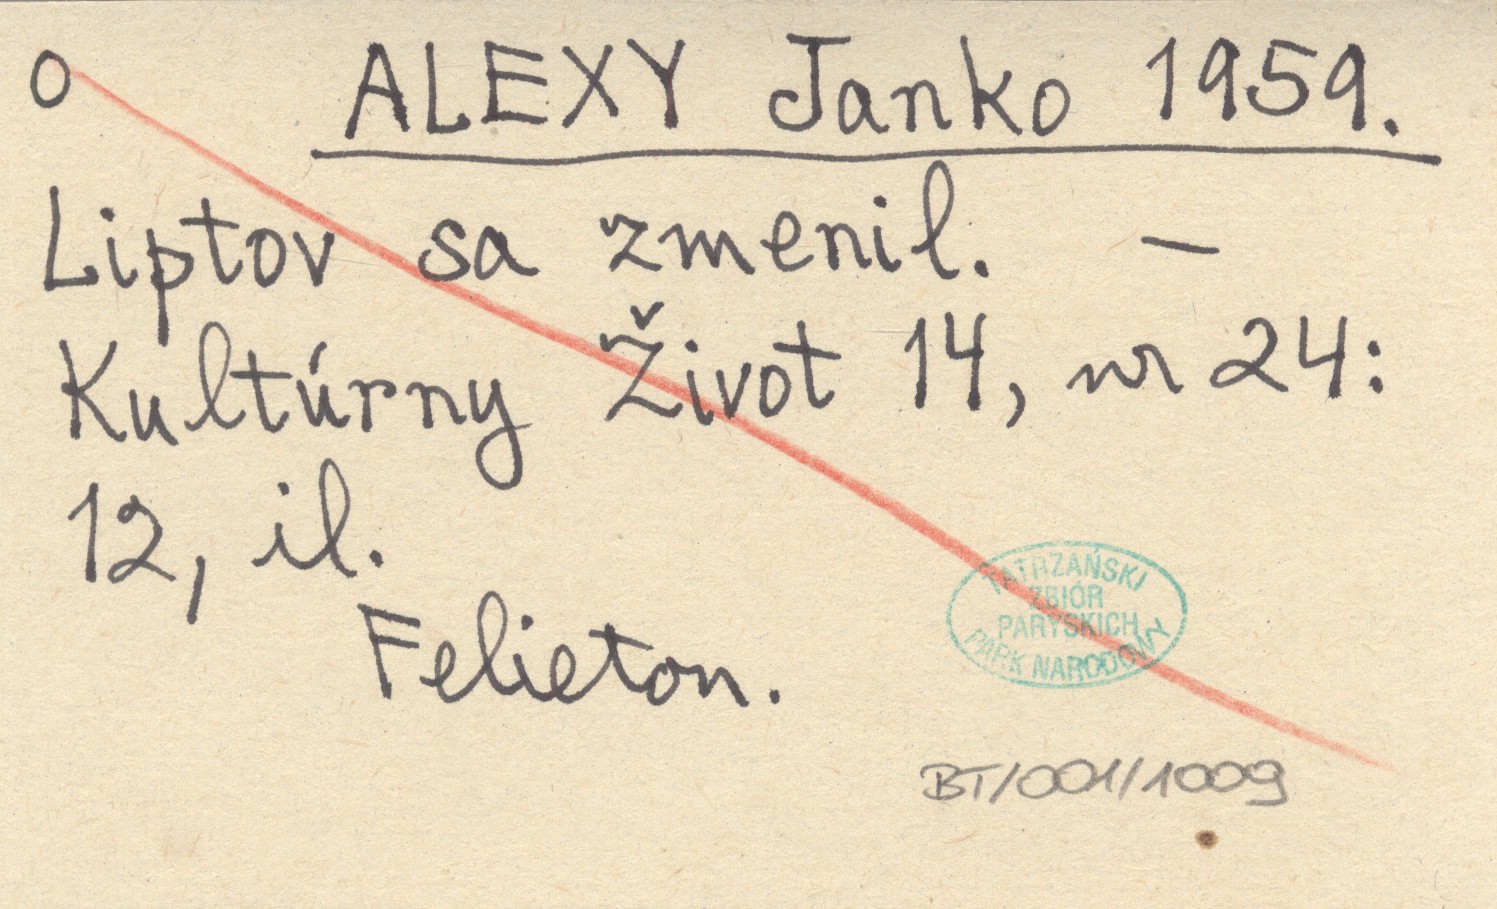 O ALEXY Janko 1959.
Liptov sa zmenil. —
Kultúrny Život 14, nr 24:
12, il.
Felieton.
TATRZAŃSKI
ZBIÓR
PARYSKICH
PARK NARODOWY
BT/001/1009